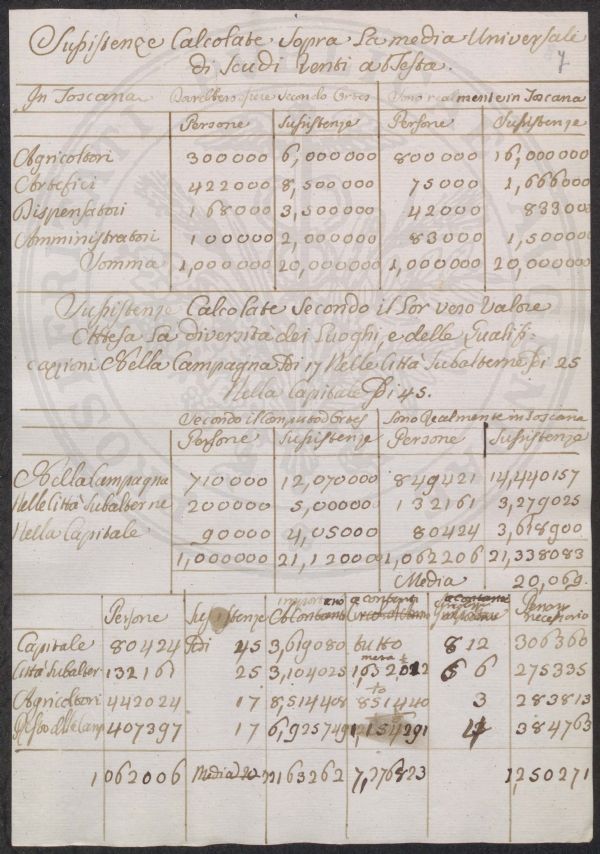 Susistenze Calcolate Sopra La media Universale
di Scudi Venti a Testa.
7
In Toscana Sarebbero Secondo Sono realmente in Toscana
Persone Susistenze Persone Susistenze
Agricoltori 300000 6,000000 800000 16,000000
Artefici 422000 8,500000 75000 1,666000
Dispensatori 168000 3,500000 42000 833000
Amministratori 100000 2,000000 83000 1,500000
Somma 1,000000 20,000000 1,000000 20,000000
Susistenze Calcolate Secondo il Lor vero Valore
Attesa La diversità dei Luoghi, e delle Qualifi-
cazioni Nella Campagna Di 17 Nelle Città Subalterne Di 25
Nella Capitale Di 45.
Secondo il Computo Sono Realmente in Toscana
Persone Susistenze Persone Susistenze
Nella Campagna 710000 12,070000 849421 14,440157
Nelle Città Subalterne 200000 5,00000 132161 3,279025
Nella Capitale 90000 4,05000 80424 3,618900
1,000000 21,12000 1,062206 21,338083
Media 20,069.
Persone Susistenze necessario
Capitale 80424 Di 45 3,619080 tutto 8 12 306360
Città Subalter 132161 25 3,104025 metà 6 275335
Agricoltori 442024 17 8,514408 851440 3 283813
Resto delle Camp 407397 17 6,925749 4 384763
1062006 Media 7,276823 1,250271